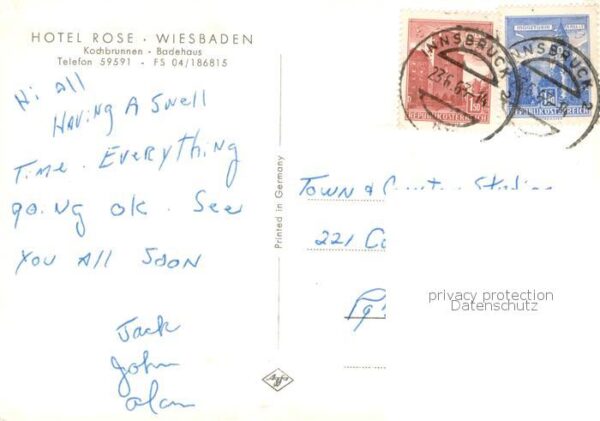 HOTEL ROSE · WIESBADEN
Kochbrunnen · Badehaus
Telefon 59591 - FS 04/186815
Hi All
HAVING A Swell
TIME. EVERYTHING
going OK. See
YOU All SOON
Jack
John
Alan
Printed in Germany
INNSBRUCK 2
23.6.67-14
1.50
REPUBLIK ÖSTERREICH
INNSBRUCK 2
REPUBLIK ÖSTERREICH
TOWN &
221
privacy protection
Datenschutz